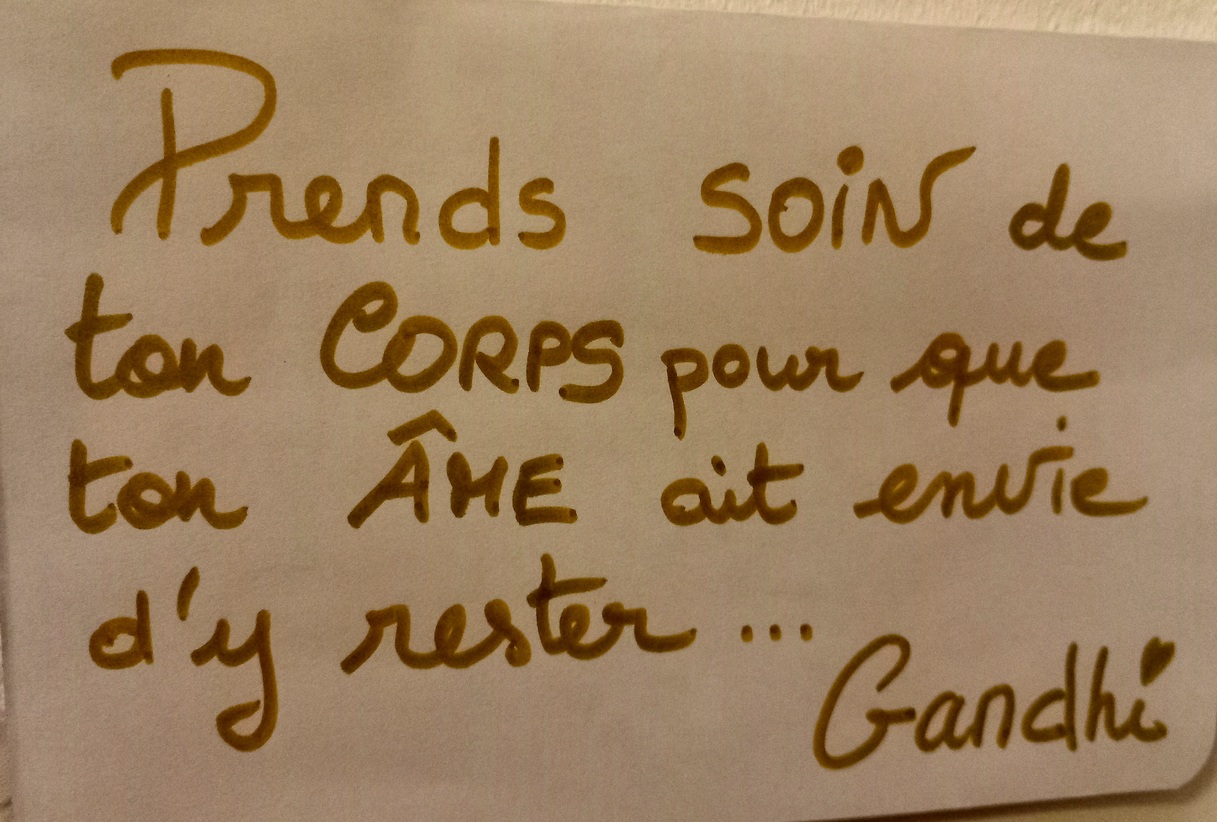 Prends SOIN de
ton CORPS pour que
ton ÂME ait envie
d'y rester...
Gandhi